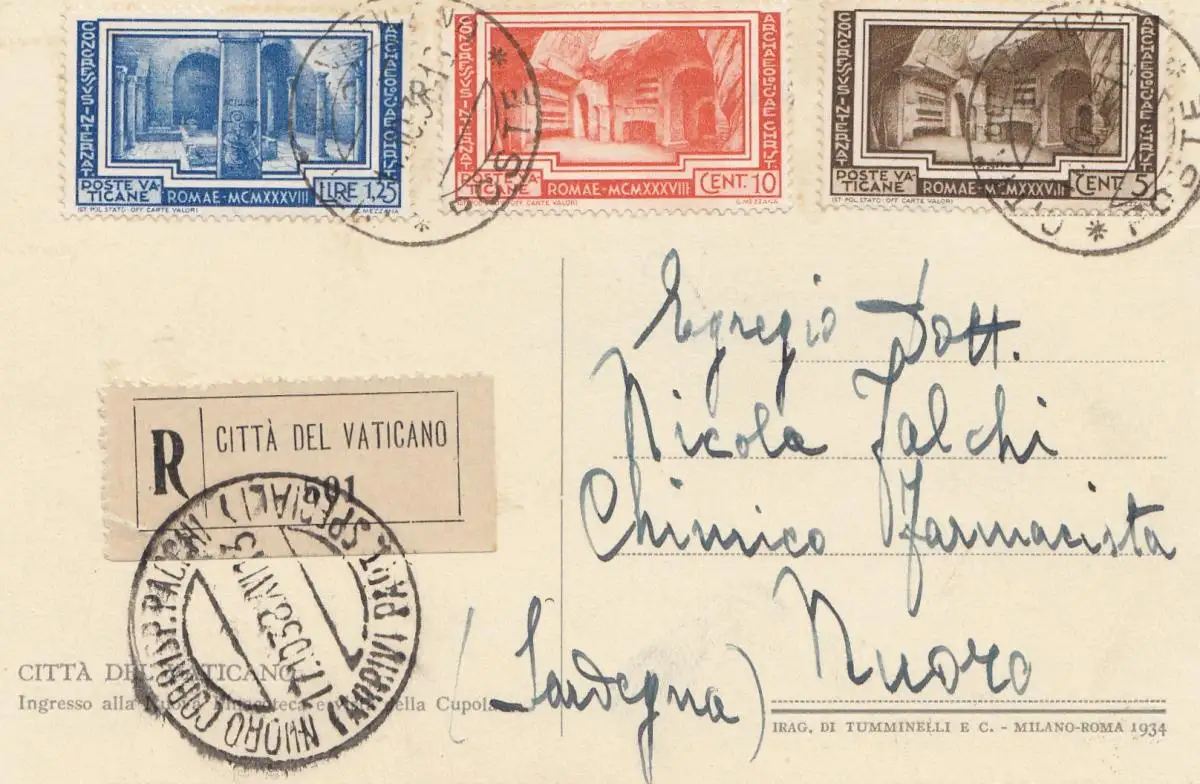 CONGRESSVS INTERNAT
ARCHAEOLOGICAE CHRIST.
POSTE VA-
TICANE
ROMAE - MCMXXXVIII
LIRE 1,25
IST. POL. STATO. OFF. CARTE VALORI
C. MEZZANA
CONGRESSVS INTERNAT
ARCHAEOLOGICAE CHRIST.
POSTE VA-
TICANE
ROMAE - MCMXXXVIII
CENT. 10
OFF. CARTE VALORI
C. MEZZANA
CONGRESSVS INTERNAT
ARCHAEOLOGICAE CHRIST.
POSTE VA-
TICANE
ROMAE - MCMXXXVIII
CENT. 5
IST. POL. STATO. OFF. CARTE VALORI
POSTE
POSTE
Egregio Dott.
Nicola Falchi
Chimico Farmacista
Nuoro
(Sardegna)
R
CITTÀ DEL VATICANO
501
NUORO CORRISP. PACCHI
(ARRIVI E PART. SPECIALI)
CITTÀ DEL VATICANO
Ingresso alla Nuova Pinacoteca e vista della Cupola
IRAG. DI TUMMINELLI E C. - MILANO-ROMA 1934